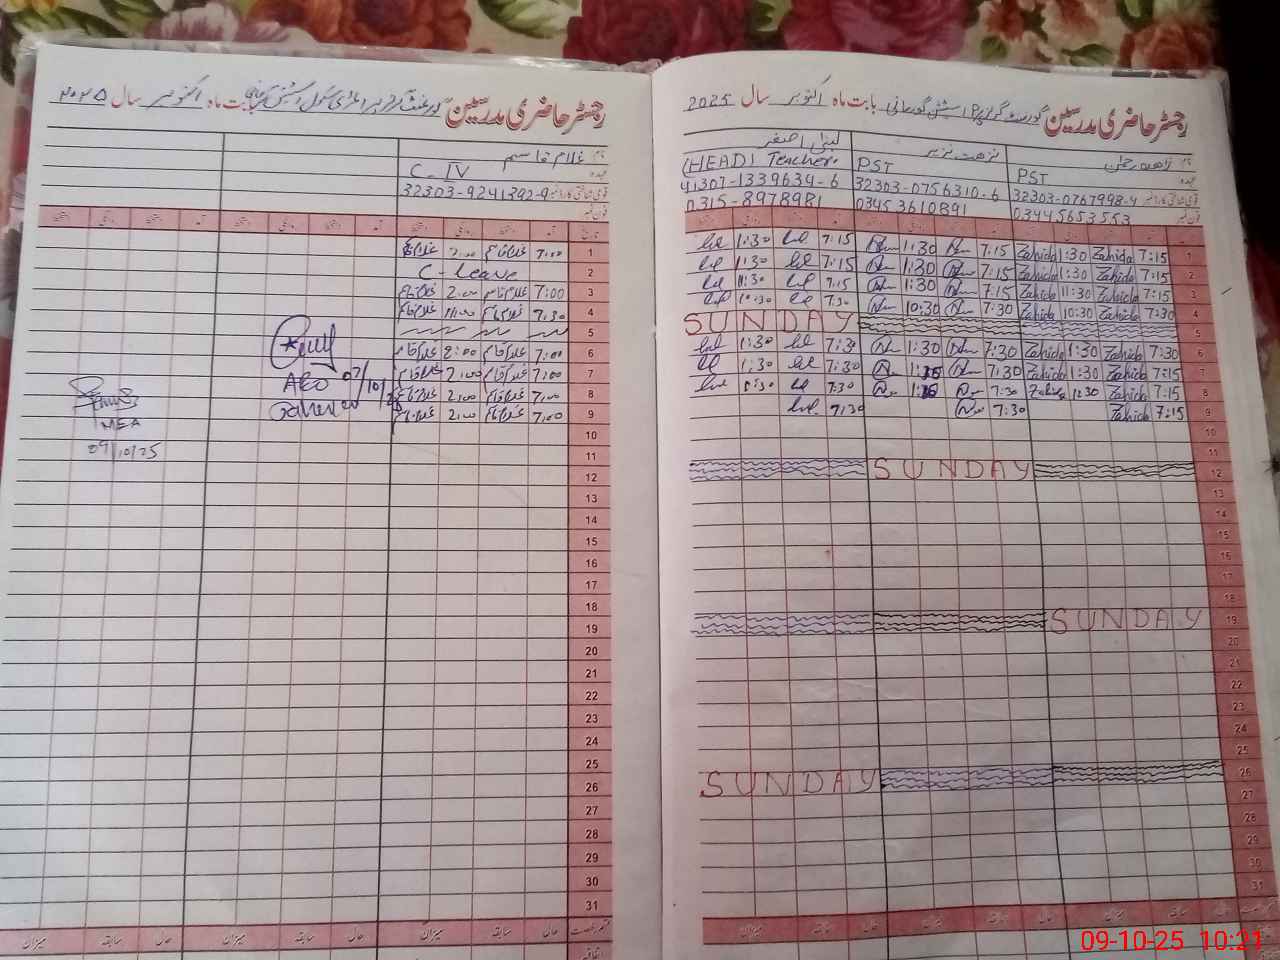 رجسٹر حاضری مدرسین گورنمنٹ گرلز پرائمری سکول اسٹیشن گورمانی بابت ماہ اکتوبر سال ۲۰۲۵
نام غلام قاسم
عہدہ C-IV
قومی شناختی کارڈ نمبر 32303-9241392-9
فون نمبر
تاریخ آمد دستخط روانگی دستخط
1 7:00 غلام قاسم 2:00 غلام قاسم
2 C-Leave
3 7:00 غلام قاسم 2:00 غلام قاسم
4 7:30 غلام قاسم 11:00 غلام قاسم
5
6 7:00 غلام قاسم 2:00 غلام قاسم
7 7:00 غلام قاسم 2:00 غلام قاسم
8 7:00 غلام قاسم 2:00 غلام قاسم
9 7:00 غلام قاسم 2:00 غلام قاسم
10
11
12
13
14
15
16
17
18
19
20
21
22
23
24
25
26
27
28
29
30
31
AEO 07/10/25
MEA
09/10/25
قسم رخصت حال سابقہ میزان حال سابقہ میزان حال سابقہ میزان
رجسٹر حاضری مدرسین گورنمنٹ گرلز P/S اسٹیشن گورمانی بابت ماہ اکتوبر سال 2025
نام زاھدہ رحمٰن نزھت نزیر لبنیٰ اصغر
عہدہ PST PST (HEAD) Teacher.
قومی شناختی کارڈ نمبر 32303-0767998-4 32303-0756310-6 41307-1339634-6
فون نمبر 03445653553 03453610891 0315-8978981
1 7:15 Zahida 1:30 Zahida 7:15 1:30 7:15 1:30
2 7:15 Zahida 1:30 Zahida 7:15 1:30 7:15 1:30
3 7:15 Zahida 11:30 Zahida 7:15 1:30 7:15 11:30
4 7:30 Zahida 10:30 Zahida 7:30 10:30 7:30 10:30
5 SUNDAY
6 7:30 Zahida 1:30 Zahida 7:30 1:30 7:30 1:30
7 7:15 Zahida 1:30 Zahida 7:30 1:15 7:30 1:30
8 7:15 Zahida 1:30 Zahida 7:30 1:15 7:30 1:30
9 7:15 Zahida 7:30 7:30
10
11
12 SUNDAY
13
14
15
16
17
18
19 SUNDAY
20
21
22
23
24
25
26 SUNDAY
27
28
29
30
31
قسم رخصت حال سابقہ میزان حال سابقہ میزان حال سابقہ میزان
09-10-25 10:21